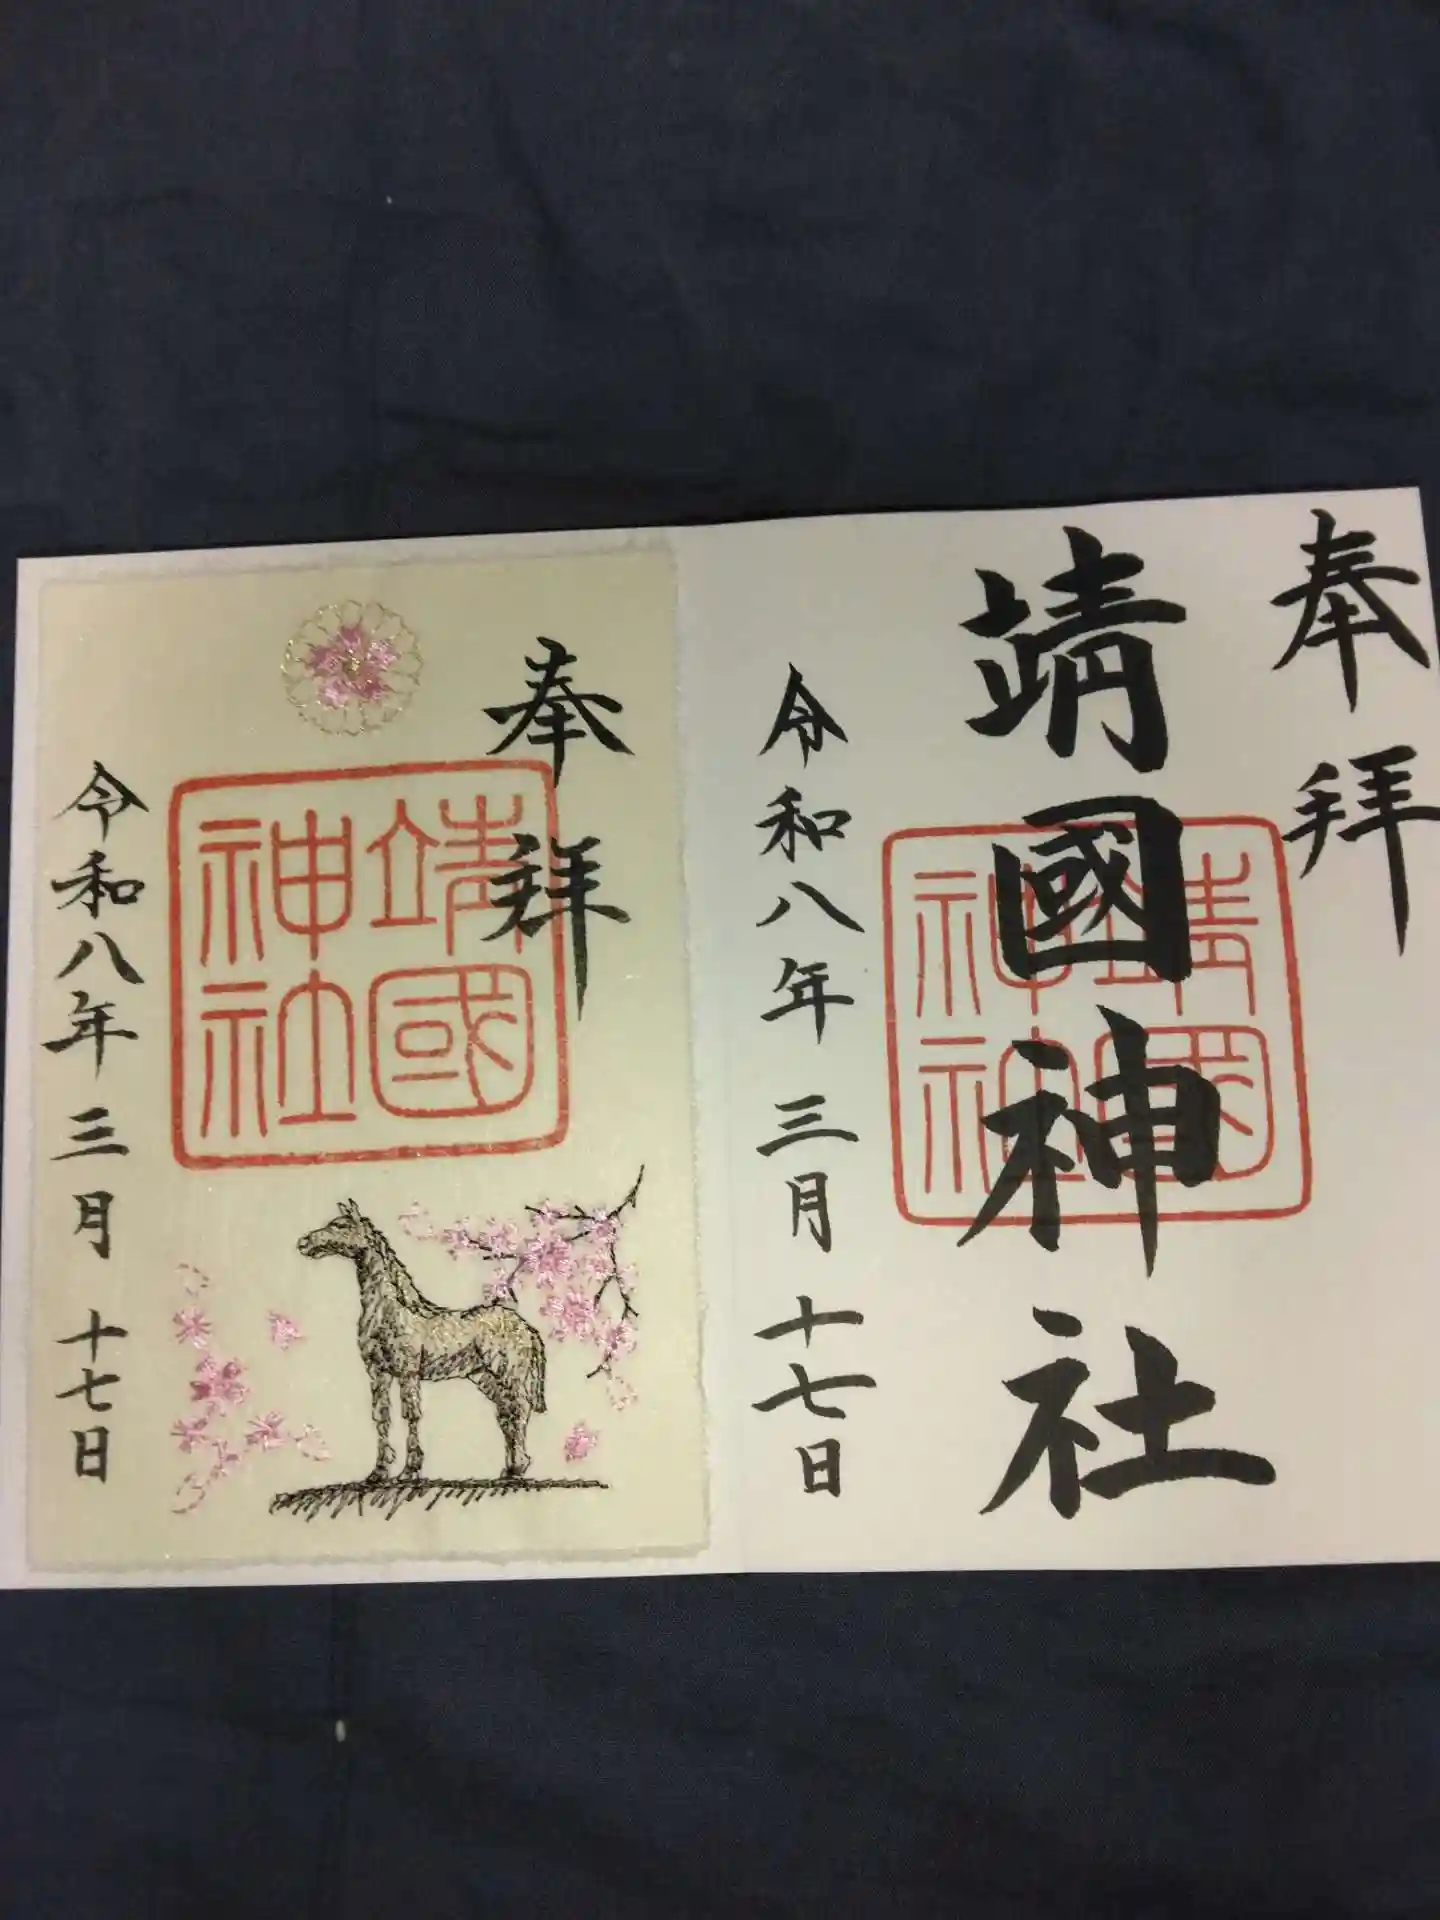 奉拝
靖國神社
靖國神社
令和八年三月十七日
奉拝
靖國神社
令和八年三月十七日